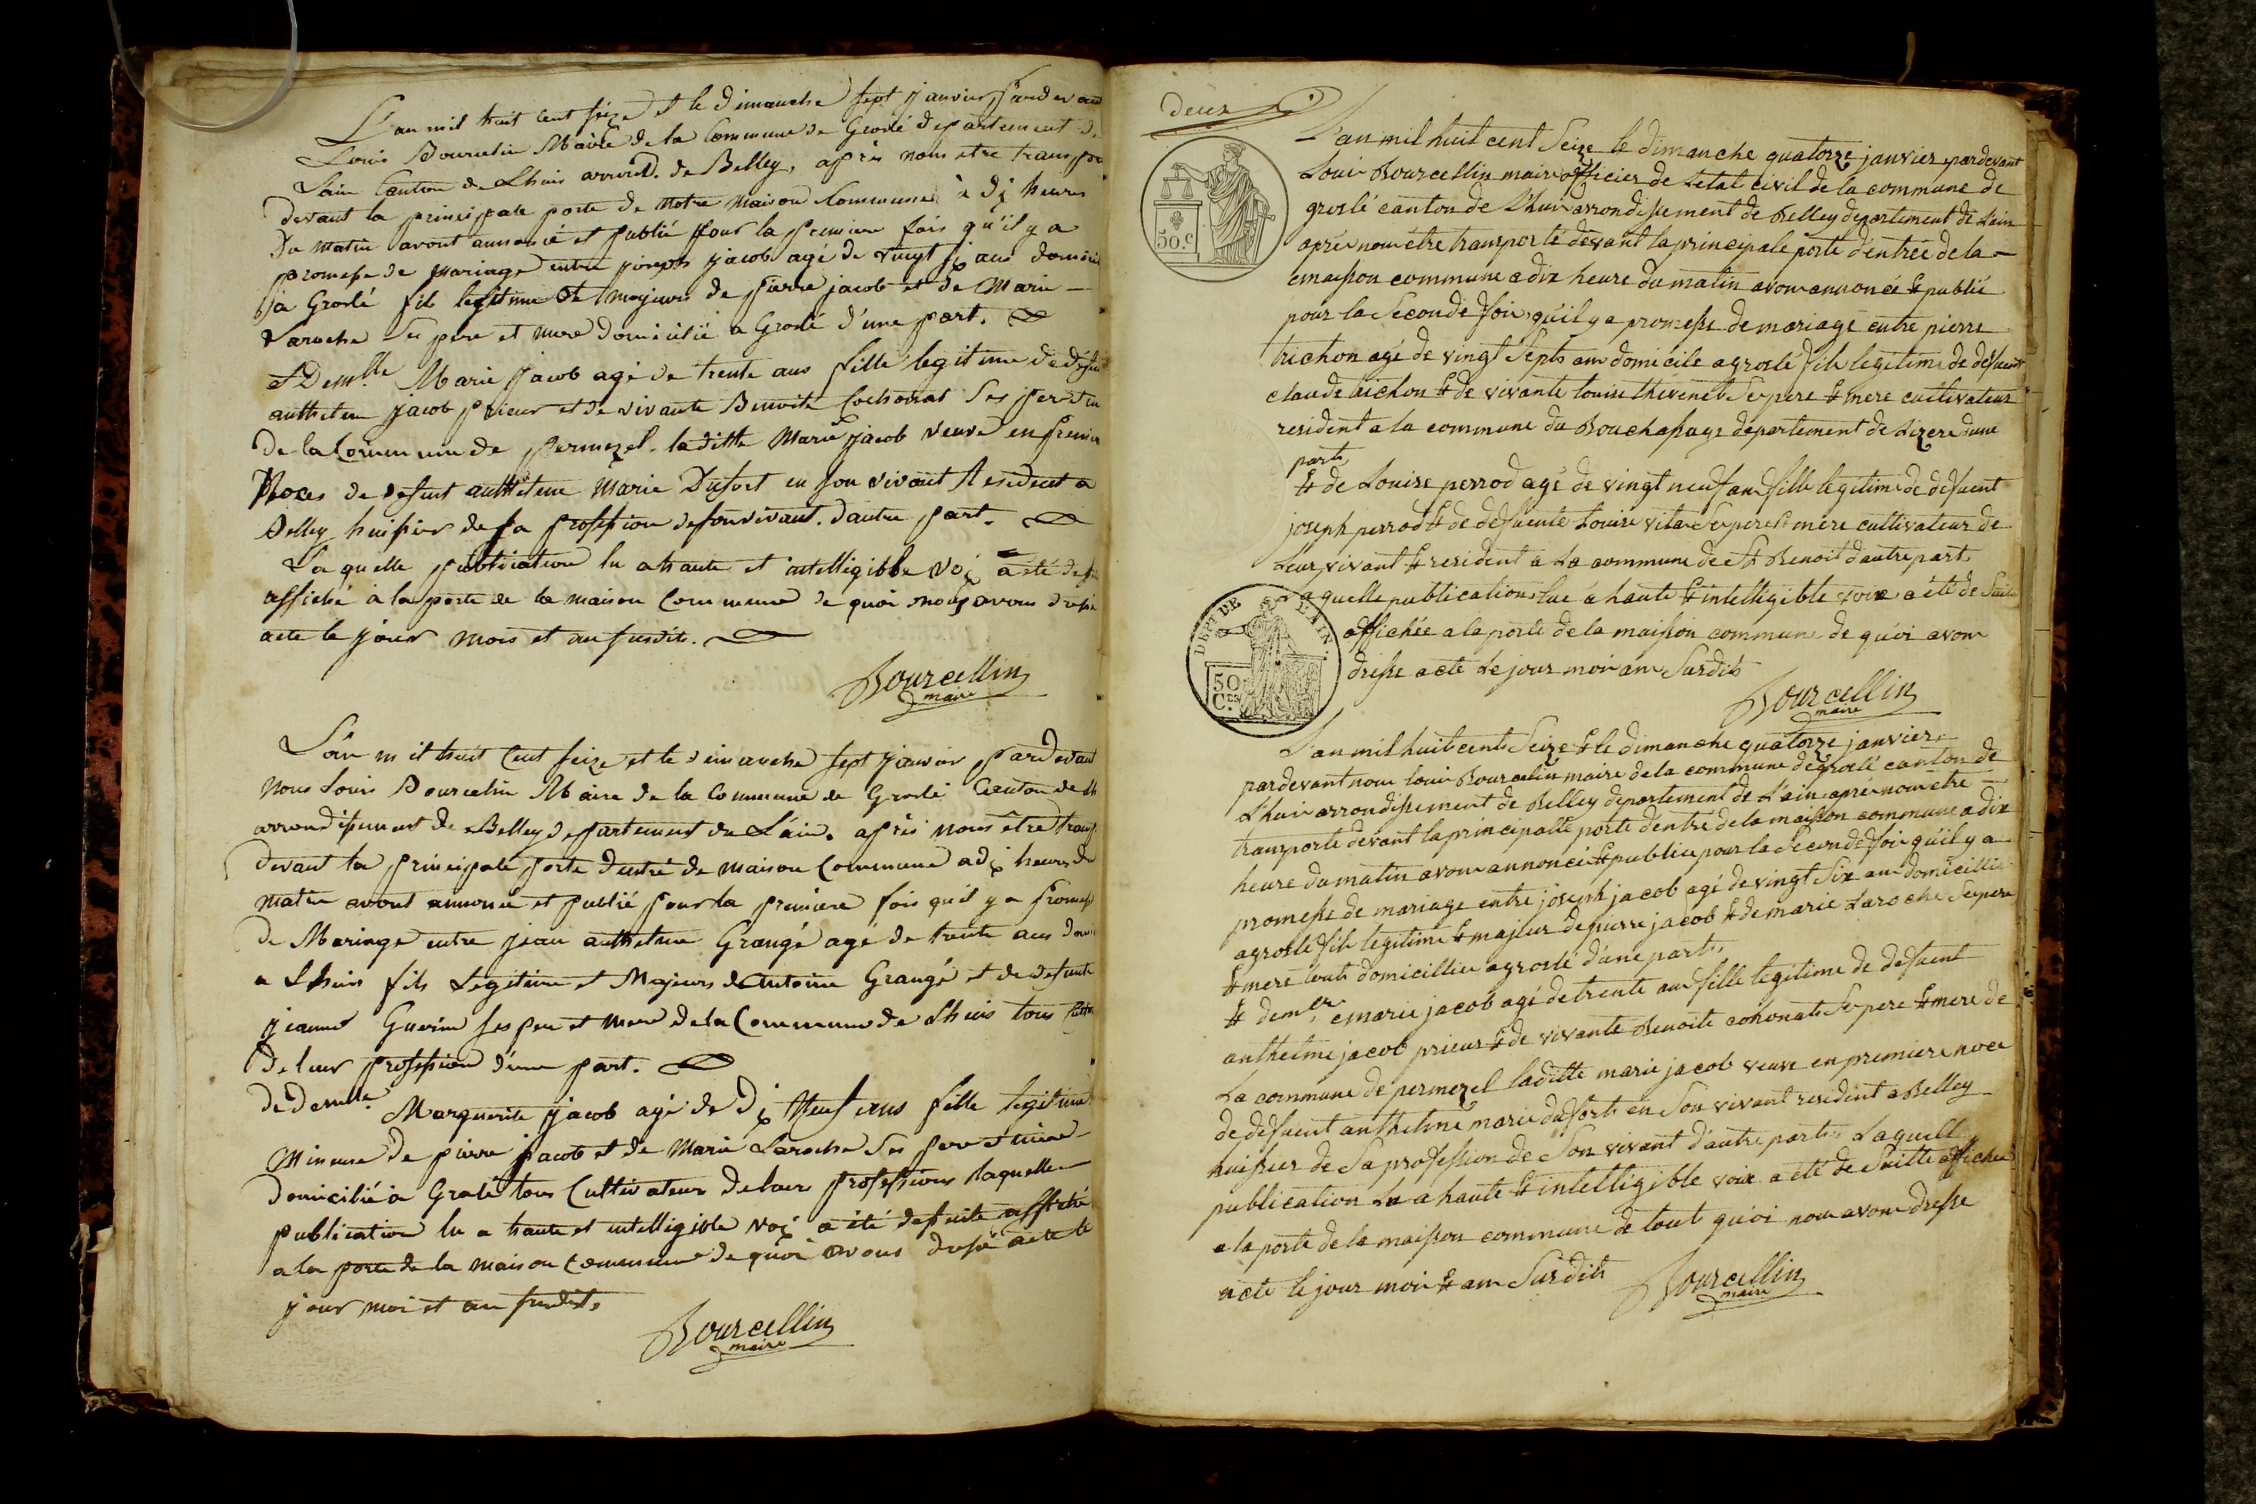 L'an mil huit cent seize et le dimanche sept janvier pardevant
Louis Bourcelin Maire de la Commune de Groslé departement de
Lain Canton de Lhuis arrond. de Belley, après nous etre transpor
devant la principale porte de notre maison Commune à dix heures
Du matin avont annoncé et publié pour la premiere fois qu'il y a
promesse de mariage entre joseph jacob agé de vingt six ans domicili
a Groslé fils legitime et majeur de pierre jacob et de Marie
Laroche ses pere et mere domicilié a Groslé d'une part.
et Demlle Marie Jacob agé de trente ans fille legitime de defunt
anthelme jacob prieur et de vivante Benoite Cochonat ses pere et m
de la Commune de permezel. laditte Marie jacob veuve en premier
Noces de defunt anthelme Marie Dufort en son vivant Résident a
Belley huissier de sa profession de son vivant. dautre part.
La quelle publication lu a haute et intelligible voix a été de sui
affiché à la porte de la maison Commune de quoi nous avons dressé
acte le jour mois et an susdit.
Bourcellin
maire
L'an mil huit Cent seize et le dimanche sept janvier pardevant
Nous Louis Bourcelin Maire de la Commune de Groslé Canton de Lh
arrondissement de Belley departement de L'ain. après nous être transp
devant la principale porte dentré de maison Commune a dix heures du
matin avont annoncé et publié pour la premiere fois qu'il y a promess
de Mariage entre jean anthelme Grangé agé de trente ans domi
a Lhuis fils Legitime et Majeurs de Antoine Grangé et de defunte
jeanne Guerin ses pere et mere de la Commune de Lhuis tous
de leur profession d'une part.
de demlle Marguerite jacob agé de dix Neuf ans fille legitime
Mineure de pierre jacob et de Marie Laroche ses pere et mere
domicilié a Groslé tous Cultivateurs de leurs professions laquelle
publication lu a haute et intelligible voix a été de suite affiché
a la porte de la maison Commune de quoi avons dressé acte le
jour moi et an susdit.
Bourcellin
maire
deux
50.C
L'an mil huit cent Seize le dimanche quatorze janvier pardevant
Louis Bourcellin maire officier de Letat civil de la commune de
groslé canton de Lhuis arrondissement de Belley departement de Lain
après nous être transporté devant la principale porte d'entrée de la
maison commune a dix heure du matin avons annoncé & publié
pour la Seconde fois qu'il y a promesse de mariage entre pierre
trichon agé de vingt Septs ans domicile a groslé fils legitime de defuent
claude trichon & de vivante louise thevenet Ses pere & mere cultivateur
resident a la commune du Bouchassage departement de Lizere dune
part
& de Louise perrod agé de vingt neuf ans fille legitime de defuent
joseph perrod & de defuente Louise vita Ses pere & mere cultivateur de
Leur vivant & resident a La commune de St Benoit d'autre part
Laquelle publication Lue a haute & intelligible voix a été de Suite
affichée a la porte de la maison commune de qu'oi avons
dresse acte Le jour moi an Susdits
DEPT. DE L'AIN.
50 Ces
C.
Bourcellin
maire
L'an mil huit cent Seize & le dimanche quatorze janvier
pardevant nous louis Bourcelin maire de la commune de groslé canton de
Lhuis arrondissement de Belley departement de L'ain après nous être
transporté devant la principalle porte d'entre de la maison commune a dix
heure du matin avons annoncé & publié pour la Seconde fois qu'il y a
promesse de mariage entre joseph jacob agé de vingt Six ans domicillié
a groslé fils legitime & majeur de pierre jacob & de marie Laroche Ses pere
& mere touts domicillier a groslé d'une part
& demler marie jacob agé de trente ans fille legitime de defuent
anthelme jacob prieur & de vivante Benoite cohonat Ses pere & mere de
La commune de permezel laditte marie jacob veuve en premiere noce
de defuent anthelme marie dufort en Son vivant resident a Belley
huissier de Sa profession de Son vivant d'autre part Laquell
publication Lu a haute & intelligible voix a été de Suitte affichée
a la porte de la maison commune de tout qu'oi nous avons dresse
acte le jour moi & an Susdits
Bourcellin
maire